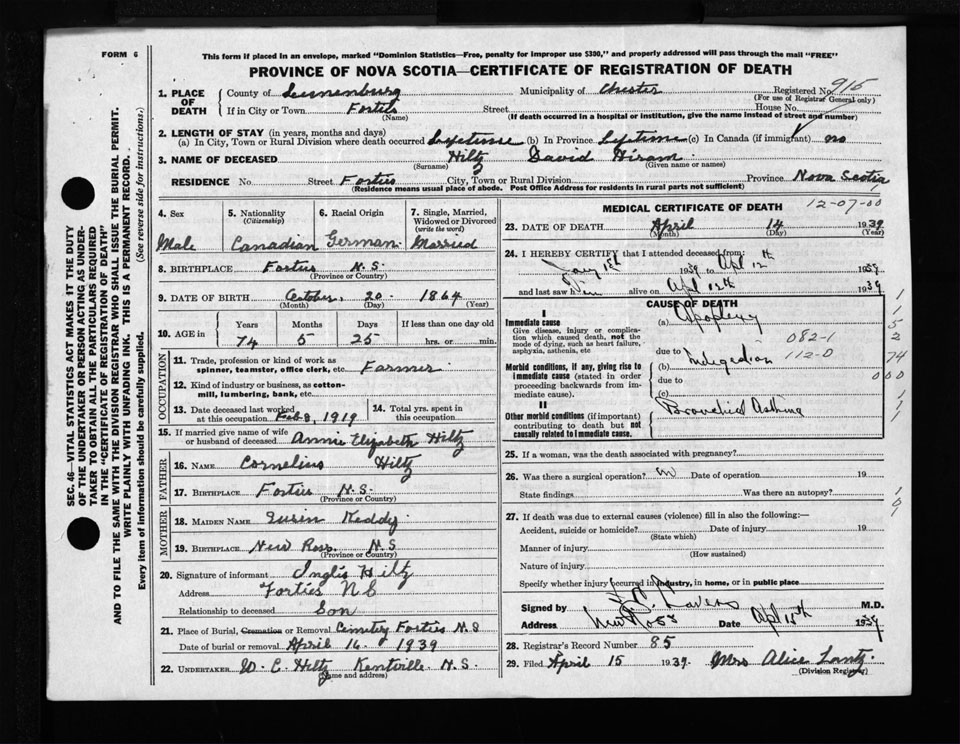 FORM 6
This form if placed in an envelope, marked "Dominion Statistics—Free, penalty for improper use $300," and properly addressed will pass through the mail "FREE"
PROVINCE OF NOVA SCOTIA—CERTIFICATE OF REGISTRATION OF DEATH
1. PLACE OF DEATH
County of Lunenburg Municipality of Chester Registered No. 915
(For use of Registrar General only)
If in City or Town Forties Street House No.
(Name) (If death occurred in a hospital or institution, give the name instead of street and number)
2. LENGTH OF STAY (in years, months and days)
(a) In City, Town or Rural Division where death occurred Lifetime (b) In Province Lifetime (c) In Canada (if immigrant) no
3. NAME OF DECEASED Hiltz David Hiram
(Surname) (Given name or names)
RESIDENCE No. Street Forties City, Town or Rural Division Province Nova Scotia
(Residence means usual place of abode. Post Office Address for residents in rural parts not sufficient)
4. Sex Male
5. Nationality (Citizenship) Canadian
6. Racial Origin German
7. Single, Married, Widowed or Divorced (write the word) Married
8. BIRTHPLACE Forties N.S.
(Province or Country)
9. DATE OF BIRTH October, 20 1864
(Month) (Day) (Year)
10. AGE in Years Months Days If less than one day
74 5 25 hrs. or min.
OCCUPATION
11. Trade, profession or kind of work as spinner, teamster, office clerk, etc. Farmer
12. Kind of industry or business, as cotton-mill, lumbering, bank, etc.
13. Date deceased last worked at this occupation Feb 8, 1919
14. Total yrs. spent in this occupation
15. If married give name of wife or husband of deceased Annie Elizabeth Hiltz
FATHER
16. NAME Cornelius Hiltz
17. BIRTHPLACE Forties N.S.
(Province or Country)
MOTHER
18. MAIDEN NAME Keddy
19. BIRTHPLACE New Ross N.S
(Province or Country)
20. Signature of informant Inglis Hiltz
Address Forties N S
Relationship to deceased Son
21. Place of Burial, Cremation or Removal Cemetery Forties N.S
Date of burial or removal April 16 1939
22. UNDERTAKER W. E Hiltz Kentville N.S.
(Name and address)
MEDICAL CERTIFICATE OF DEATH
12-07-00
23. DATE OF DEATH April 14 1939
(Month) (Day) (Year)
24. I HEREBY CERTIFY that I attended deceased from:
Jany 1st 1939 to Apl 12th 1939
and last saw him alive on Apl 12th 1939
CAUSE OF DEATH
I
Immediate cause
Give disease, injury or complication which caused death, not the mode of dying, such as heart failure, asphyxia, asthenia, etc
(a) Apoplexy
082-1
due to
Morbid conditions, if any, giving rise to immediate cause (stated in order proceeding backwards from immediate cause).
(b) Indigestion 112-0
due to
(c)
II
Other morbid conditions (if important) contributing to death but not causally related to immediate cause.
Bronchial Asthma
1
1
5
2
74
000
1
1
1
25. If a woman, was the death associated with pregnancy?
26. Was there a surgical operation? no Date of operation 19
State findings Was there an autopsy?
27. If death was due to external causes (violence) fill in also the following:—
Accident, suicide or homicide? Date of injury 19
(State which)
Manner of injury
(How sustained)
Nature of injury
Specify whether injury occurred in industry, in home, or in public place
Signed by M.D.
Address New Ross Date Apl 15th 1939
28. Registrar's Record Number 85
29. Filed April 15 1939. Mrs Alice Lantz
(Division Registrar)
SEC. 46—VITAL STATISTICS ACT MAKES IT THE DUTY
OF THE UNDERTAKER OR PERSON ACTING AS UNDER-
TAKER TO OBTAIN ALL THE PARTICULARS REQUIRED
IN THE "CERTIFICATE OF REGISTRATION OF DEATH"
AND TO FILE THE SAME WITH THE DIVISION REGISTRAR WHO SHALL ISSUE THE BURIAL PERMIT.
WRITE PLAINLY WITH UNFADING INK. THIS IS A PERMANENT RECORD.
Every item of information should be carefully supplied. (See reverse side for instructions.)